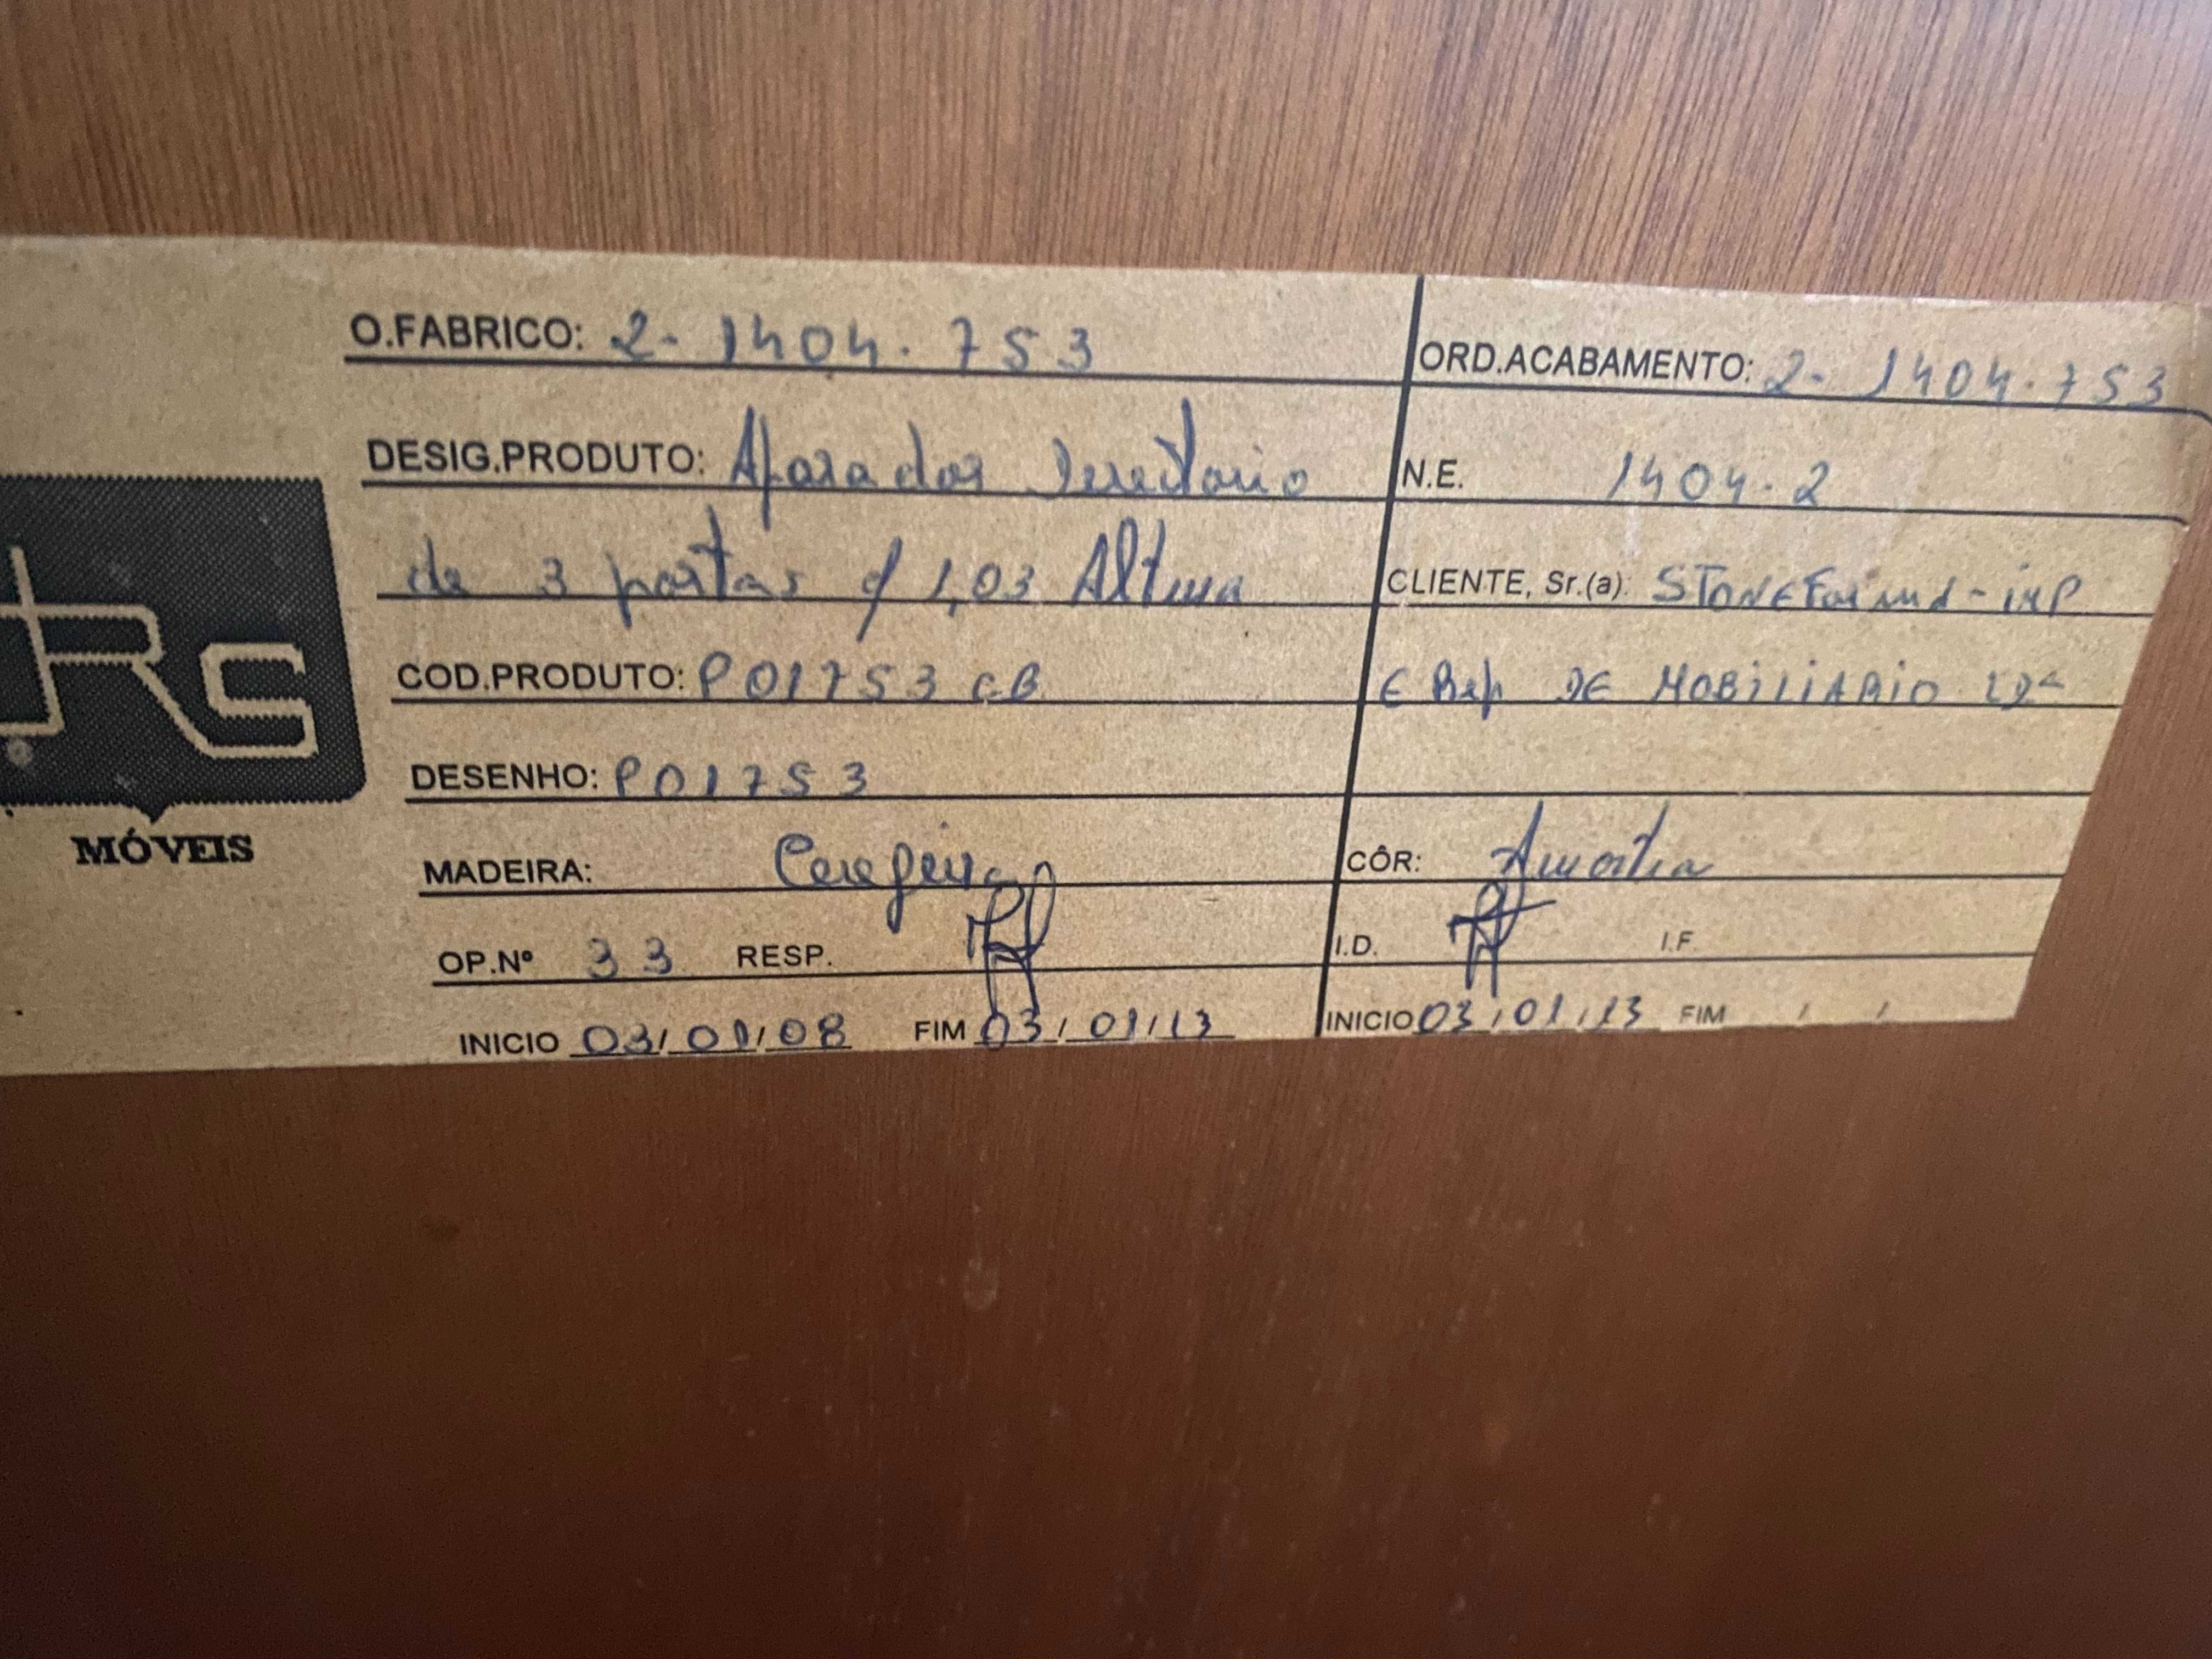 O.FABRICO: 2-1404.753
DESIG.PRODUTO: Aparador Directorio
de 3 portas c/ 1,03 Altura
COD.PRODUTO: P01753CB
DESENHO: P01753
MADEIRA: Cerejeira
OP.Nº 33 RESP.
INICIO 03/01/08 FIM 03/01/13
ORD.ACABAMENTO: 2-1404.753
N.E. 1404.2
CLIENTE, Sr.(a): -imp
E Rep DE MOBILIARIO LDª
CÔR: Amostra
I.D. I.F.
INICIO 03/01/13 FIM / /
JRS
MÓVEIS